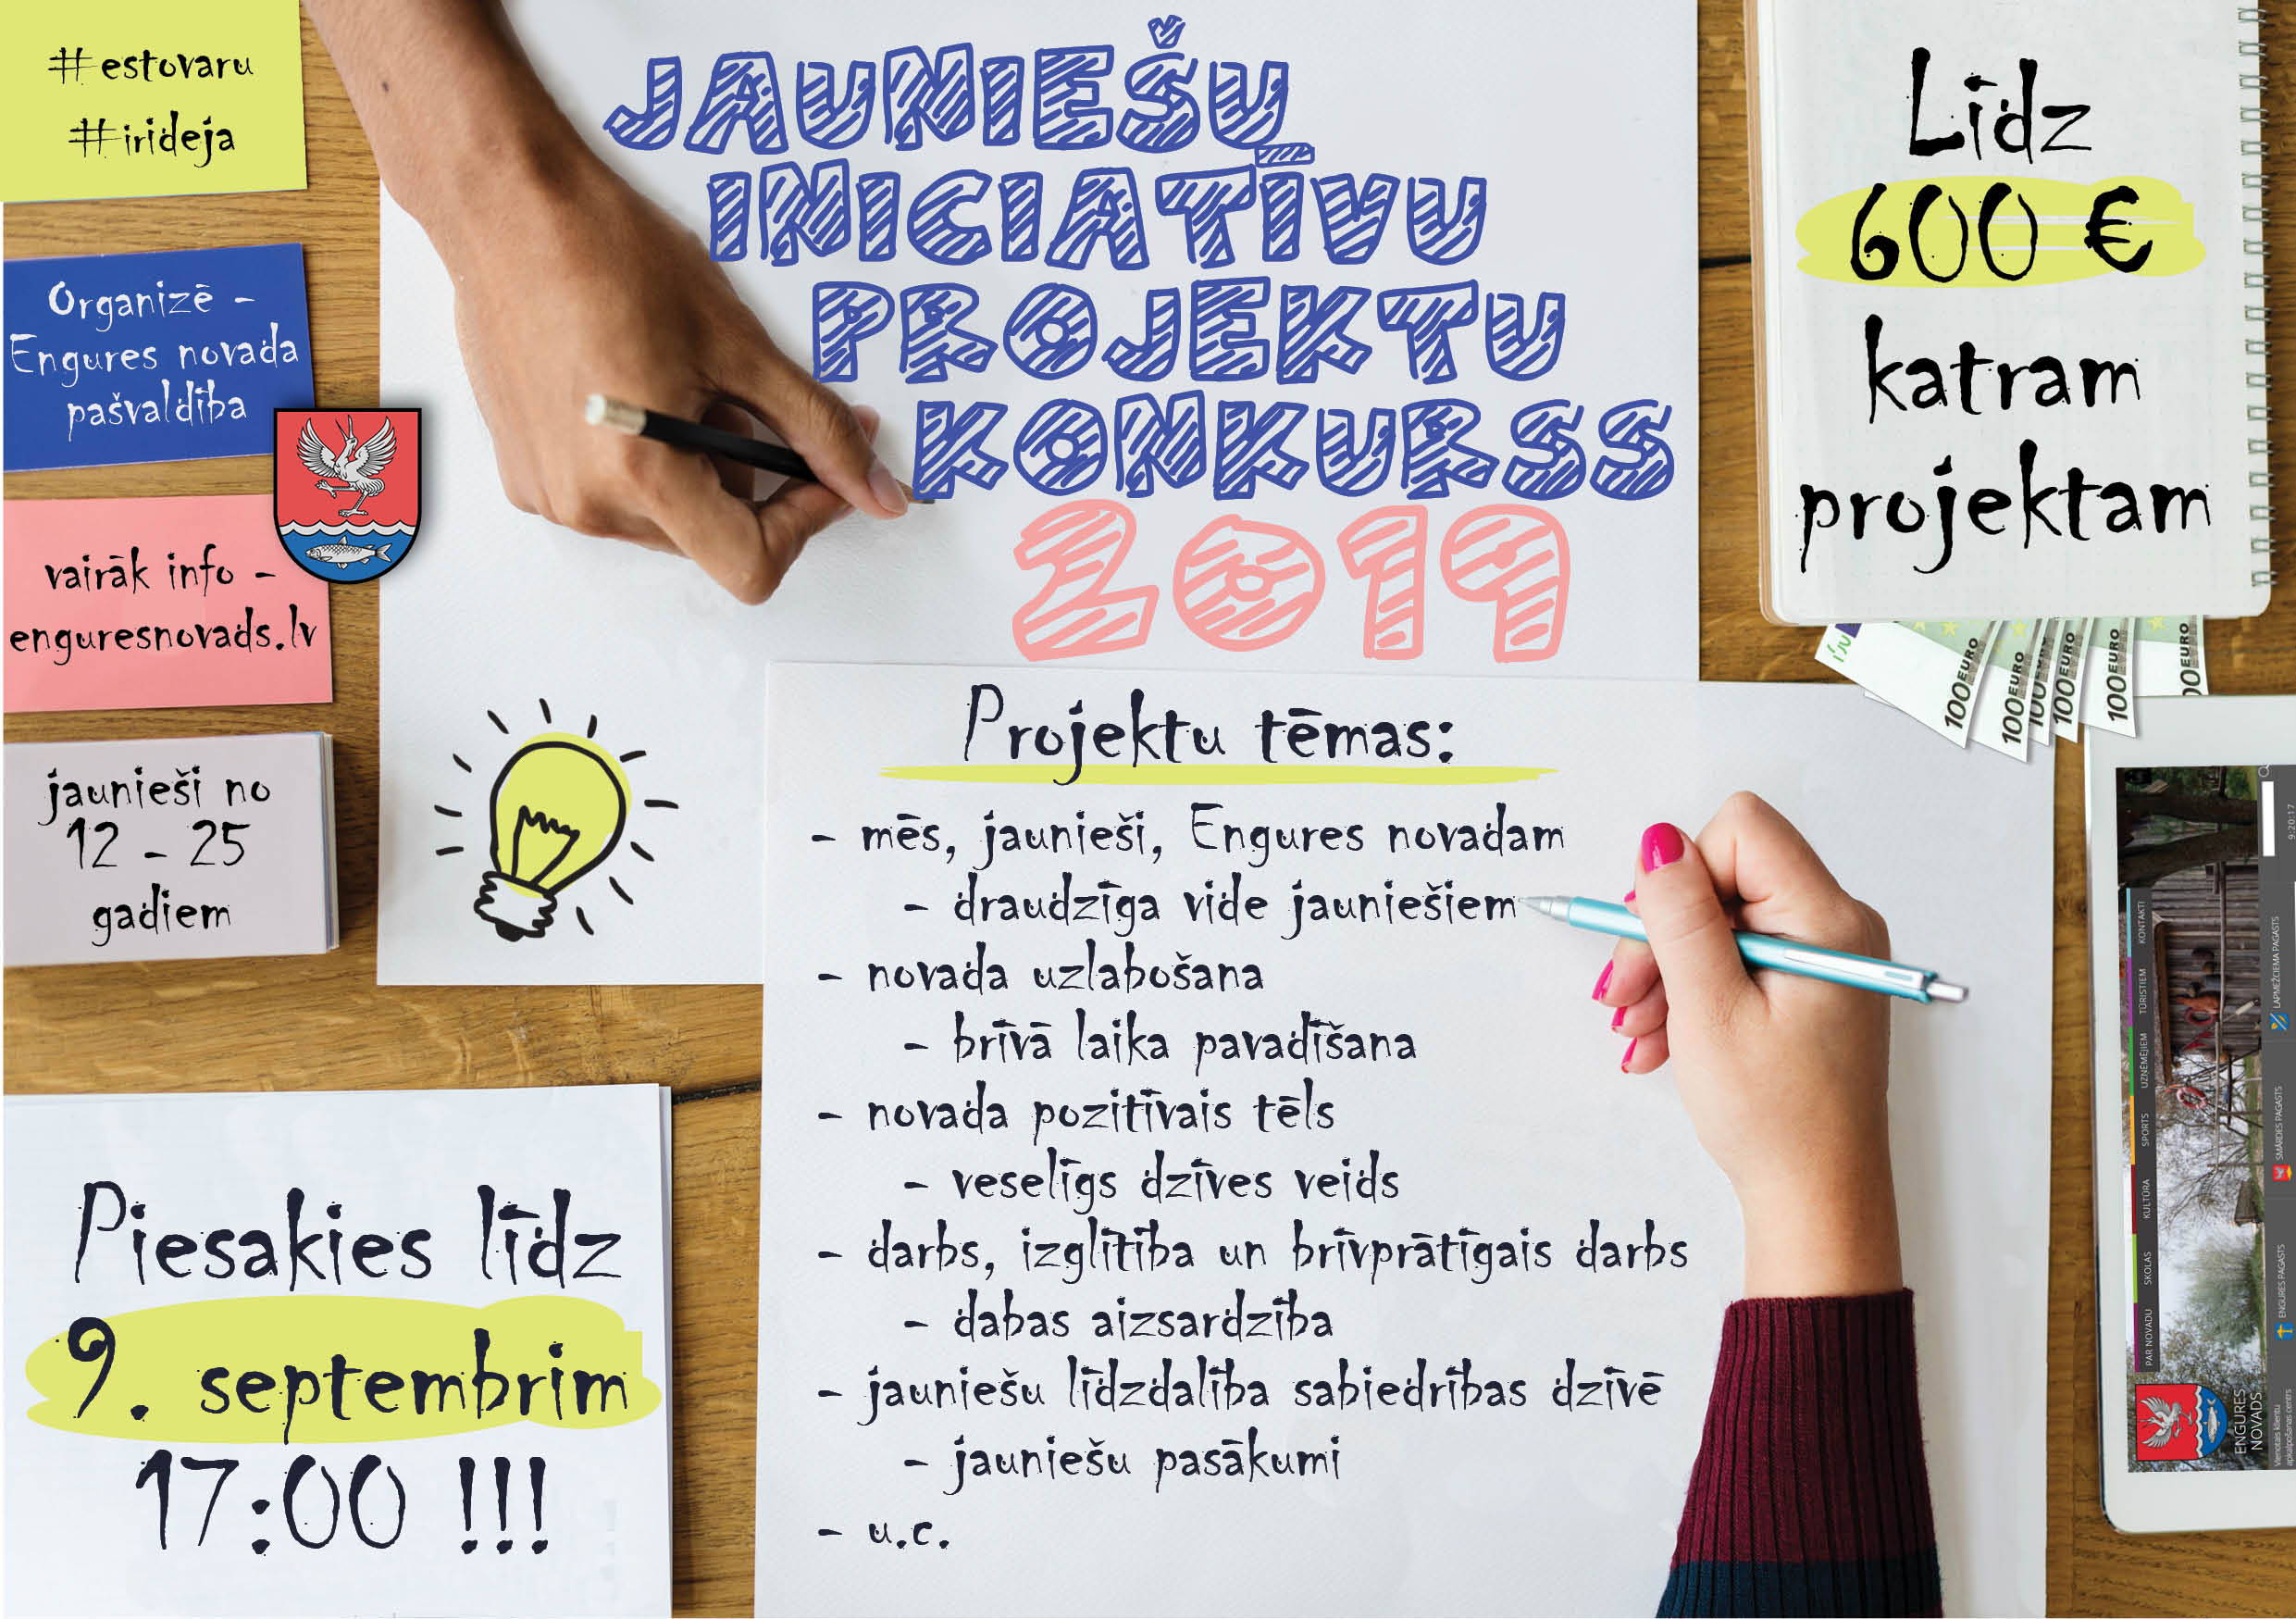 #estovaru
#irideja
Organizē -
Engures novada
pašvaldība
vairāk info -
enguresnovads.lv
jaunieši no
12 - 25
gadiem
JAUNIEŠU
INICIATĪVU
PROJEKTU
KONKURSS
2019
Līdz
600 €
katram
projektam
100 EURO
100 EURO
100 EURO
100 EURO
100 EURO
00 EURO
Projektu tēmas:
- mēs, jaunieši, Engures novadam
- draudzīga vide jauniešiem
- novada uzlabošana
- brīvā laika pavadīšana
- novada pozitīvais tēls
- veselīgs dzīves veids
- darbs, izglītība un brīvprātīgais darbs
- dabas aizsardzība
- jauniešu līdzdalība sabiedrības dzīvē
- jauniešu pasākumi
- u.c.
Piesakies līdz
9. septembrim
17:00 !!!
PAR NOVADU SKOLAS KULTŪRA SPORTS UZŅĒMĒJIEM TŪRISTIEM KONTAKTI
ENGURES
NOVADS
Vienotais klientu
apkalpošanas centrs
ENGURES PAGASTS SMĀRDES PAGASTS LAPMEŽCIEMA PAGASTS
9:20:17